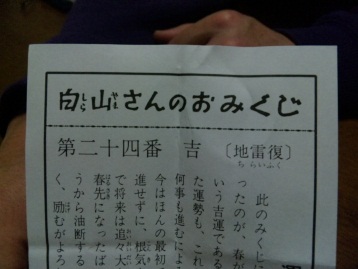 白山さんのおみくじ
しらやま
第二十四番 吉 〔地雷復〕
ちらいふく
此のみくじ
ったのが、春が
いう吉運である
た運勢も、これ
何事も進むによ
今はほんの最初
進せずに、根気
で将来は追々大
春先になったば
うから油断する
く、励むがよろ